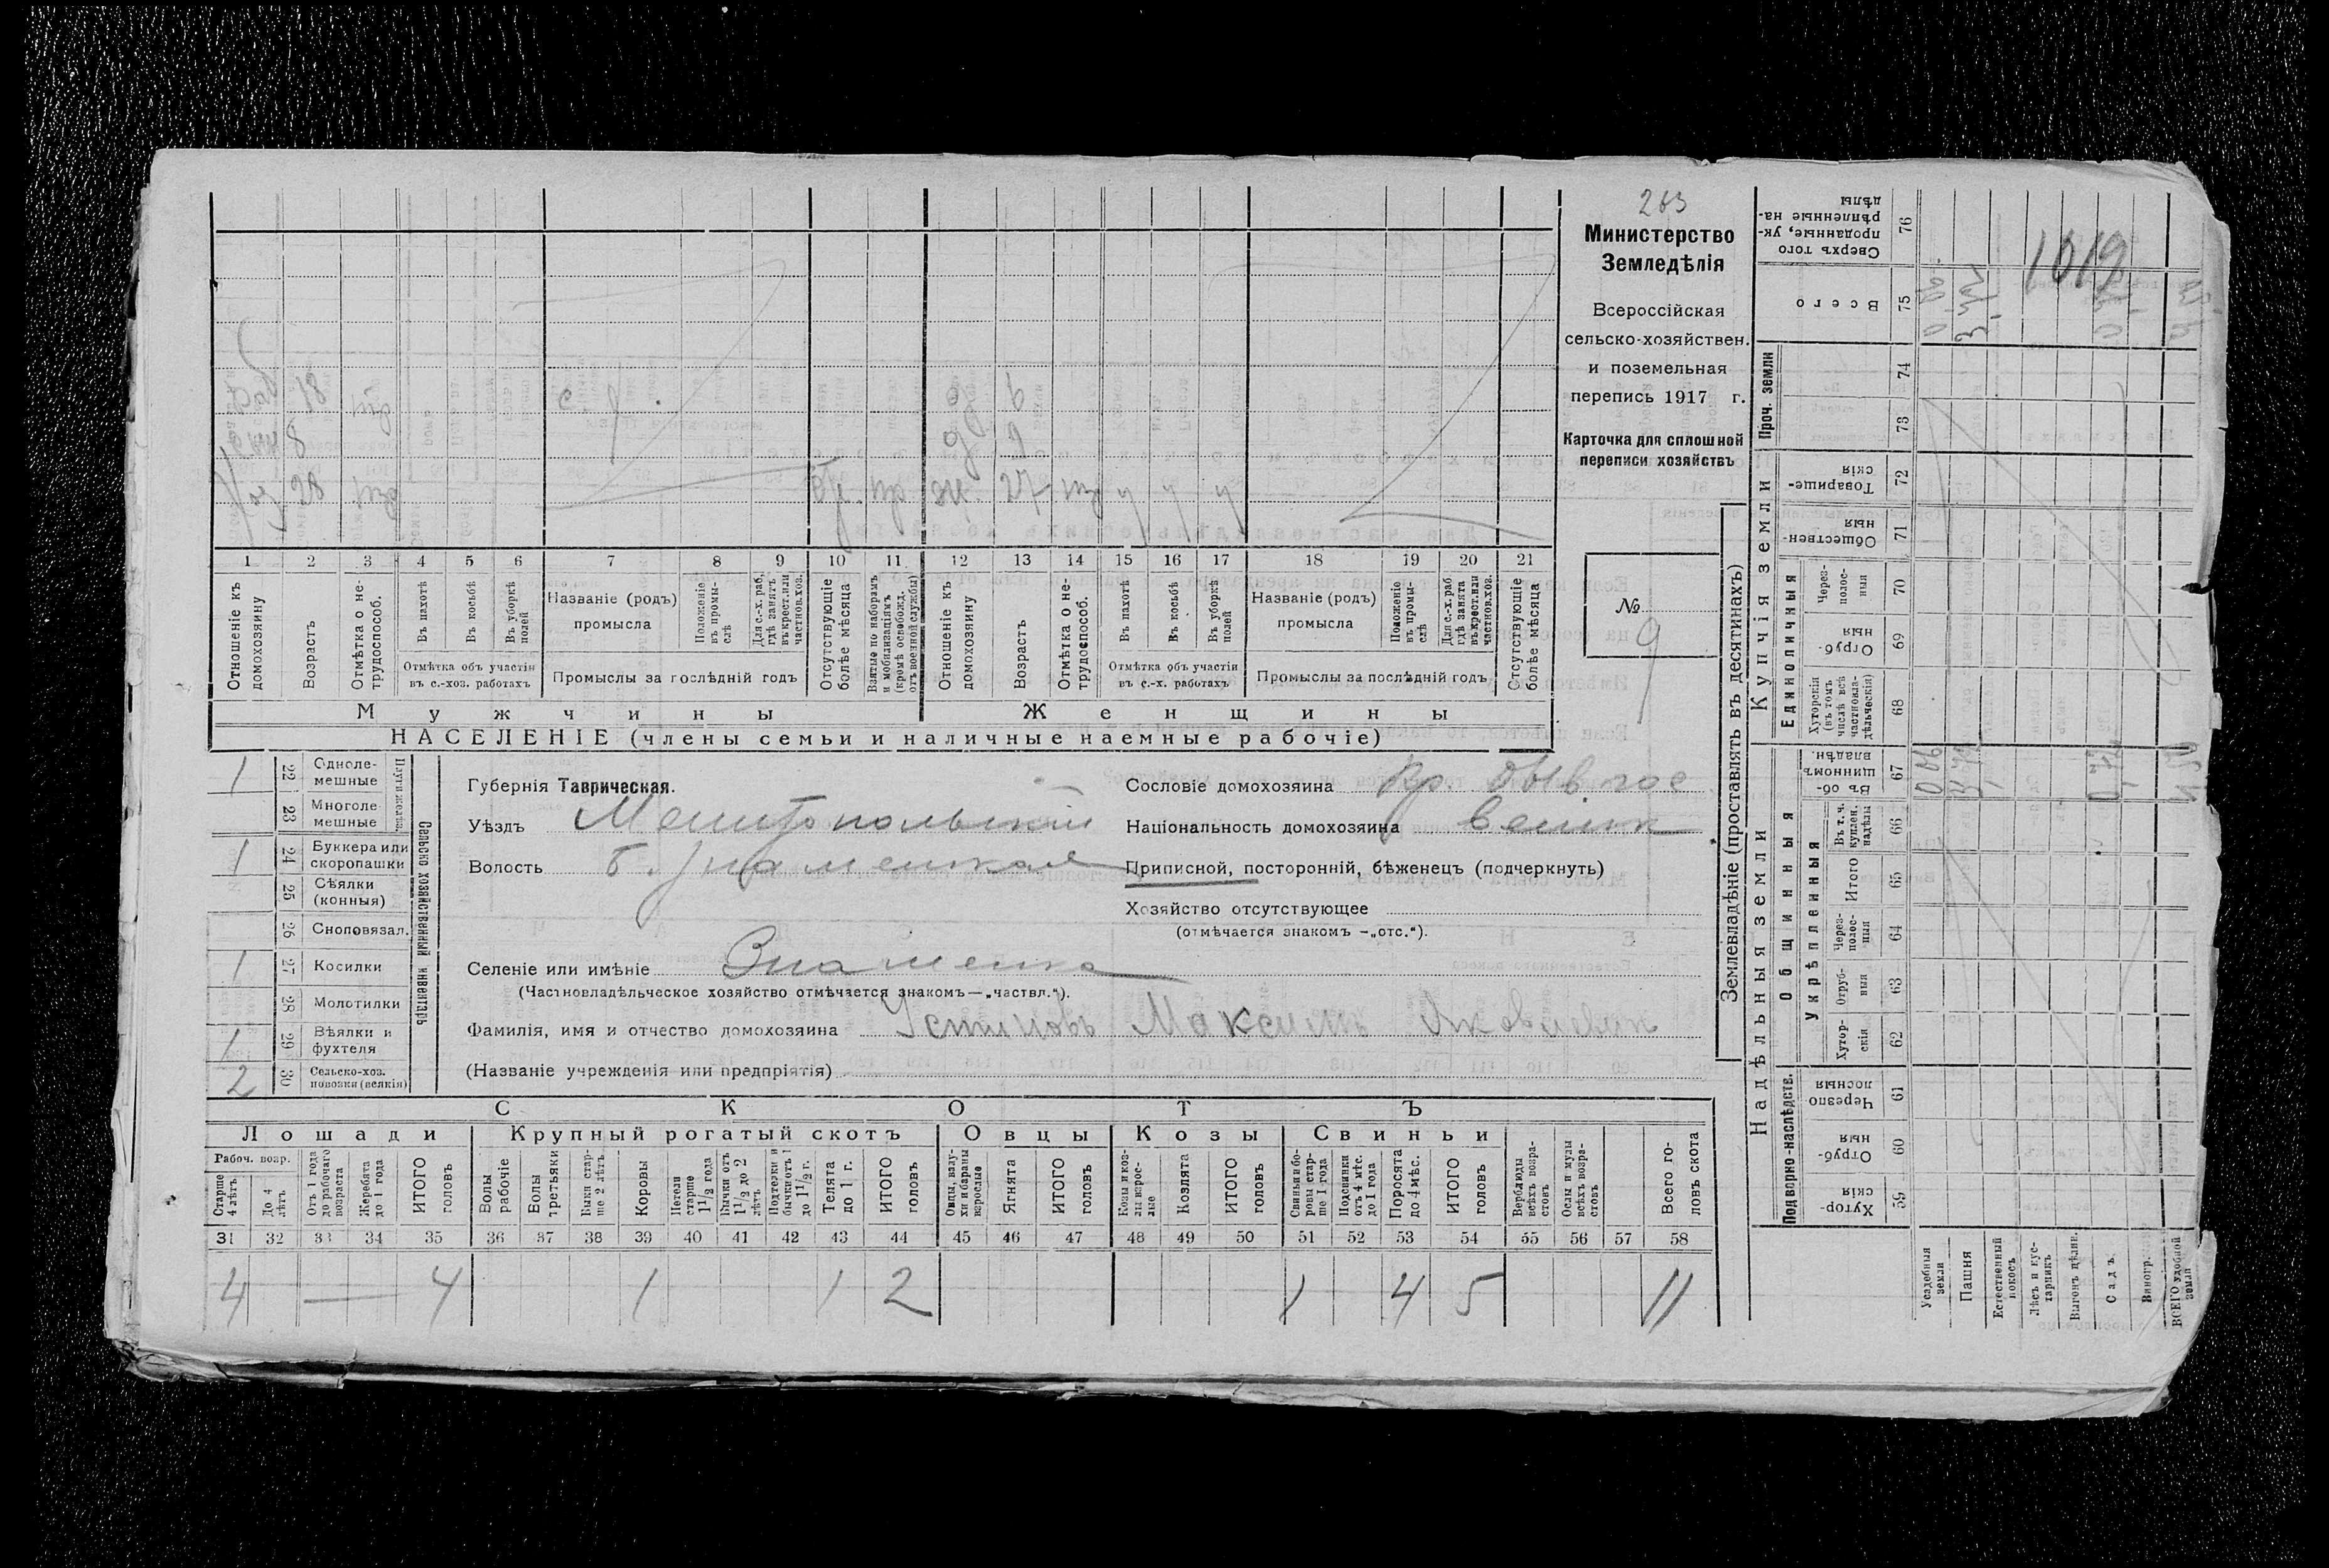 263
Министерство
Земледѣлія
Всероссійская
сельско-хозяйствен.
и поземельная
перепись 1917 г.
Карточка для сплошной
переписи хозяйствъ
№
9
Хоз 28 27
8 9
18 6
1 2 3 4 5 6 7 8 9 10 11 12 13 14 15 16 17 18 19 20 21
Отношеніе къ домохозяину
Возрастъ
Отмѣтка о нетрудоспособ.
Въ пахотѣ
Въ косьбѣ
Въ уборкѣ полей
Отмѣтка объ участіи въ с.-хоз. работахъ
Названіе (родъ) промысла
Положеніе въ промыслѣ
Для с.-х. раб. гдѣ занятъ въ крест. или частнов. хоз.
Промыслы за послѣдній годъ
Отсутствующіе болѣе мѣсяца
Взятые по наборамъ и мобилизаціямъ (кромѣ освобожд. отъ военной службы)
Отношеніе къ домохозяину
Возрастъ
Отмѣтка о нетрудоспособ.
Въ пахотѣ
Въ косьбѣ
Въ уборкѣ полей
Отмѣтка объ участіи въ с.-х. работахъ
Названіе (родъ) промысла
Положеніе въ промыслѣ
Для с.-х. раб гдѣ занята въ крест. или частнов. хоз.
Промыслы за послѣдній годъ
Отсутствующіе болѣе мѣсяца
Мужчины
Женщины
НАСЕЛЕНІЕ (члены семьи и наличные наемные рабочіе)
Сельско хозяйственный инвентарь
1 22 Одноле-мешные
23 Многоле-мешные
1 24 Буккера или скоропашки
25 Сѣялки (конныя)
26 Сноповязал.
1 27 Косилки
28 Молотилки
1 29 Вѣялки и фухтеля
2 30 Сельско-хоз. повозки (всякія)
Губернія Таврическая.
Уѣздъ Мелитопольскій
Волость Б. Знаменская
Селеніе или имѣніе Знаменка
(Частновладѣльческое хозяйство отмѣчается знакомъ—„частвл.“).
Сословіе домохозяина Кр. быв гос
Національность домохозяина велик
Приписной, посторонній, бѣженецъ (подчеркнуть)
Хозяйство отсутствующее
(отмѣчается знакомъ —„отс.“).
Фамилія, имя и отчество домохозяина Устиновъ Максимъ Яковлевич
(Названіе учрежденія или предпріятія)
СКОТЪ
Лошади Крупный рогатый скотъ Овцы Козы Свиньи
Рабоч. возр.
Старше 4 лѣтъ
До 4 лѣтъ
Отъ 1 года до рабочаго возраста
Жеребята до 1 года
ИТОГО головъ
Волы рабочіе
Волы третьяки
Быки старше 2 лѣтъ
Коровы
Нетели старше 1 1/2 года
Бычки отъ 1 1/2 до 2 лѣтъ
Подтелки и бычки отъ 1 до 1 1/2 г.
Телята до 1 г.
ИТОГО головъ
Овцы, валухи и бараны взрослые
Ягнята
ИТОГО головъ
Козы и козлы взрослые
Козлята
ИТОГО головъ
Свиньи и боровы старше 1 года
Подсвинки отъ 4 мѣс. до 1 года
Поросята до 4 мѣс.
ИТОГО головъ
Верблюды всѣхъ возрастовъ
Ослы и мулы всѣхъ возрастовъ
Всего головъ скота
31 32 33 34 35 36 37 38 39 40 41 42 43 44 45 46 47 48 49 50 51 52 53 54 55 56 57 58
4 — 4 1 1 2 1 4 5 11
Землевладѣніе (проставлять въ десятинахъ)
Надѣльныя земли
Купчія земли
Проч. земли
Подворно-наслѣдств.
Общинныя
Укрѣпленныя
Единоличныя
Сверхъ того проданные, укрѣпленные надѣлы 76
Всего 75
74
73
Товарищескія 72
Общественныя 71
Черезполосныя 70
Отрубныя 69
Хуторскія (въ томъ числѣ всѣ частновладѣльческія) 68
Въ общинномъ владѣн. 67
Въ т. ч. куплен. надѣлы 66
Итого 65
Черезполосныя 64
Отрубныя 63
Хуторскія 62
Черезполосныя 61
Отрубныя 60
Хуторскія 59
Усадебныя земли
Пашня
Естественный покосъ
Лѣсъ и кустарникъ
Выгонъ цѣлин.
Садъ.
Виногр.
ВСЕГО удобной земли
1019